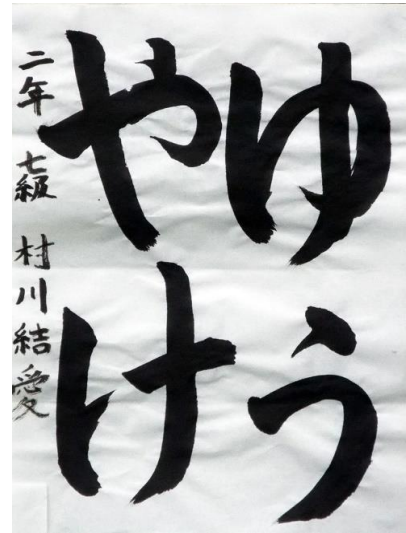 ゆう
やけ
二年 七級 村川結愛